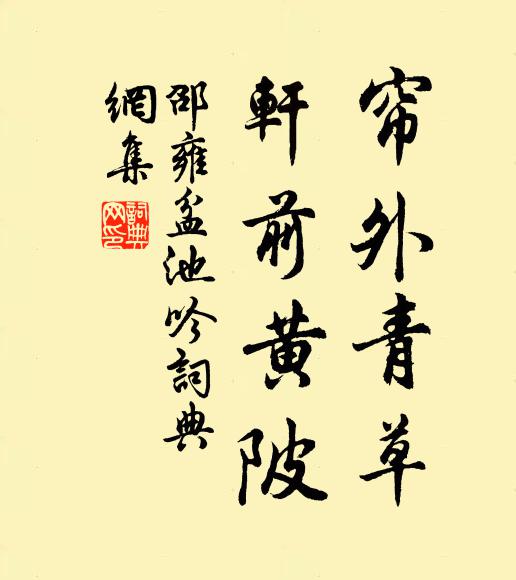 帘外青草
軒前黄陂
邵雍盆池吟詞典
網集
詞典
网印